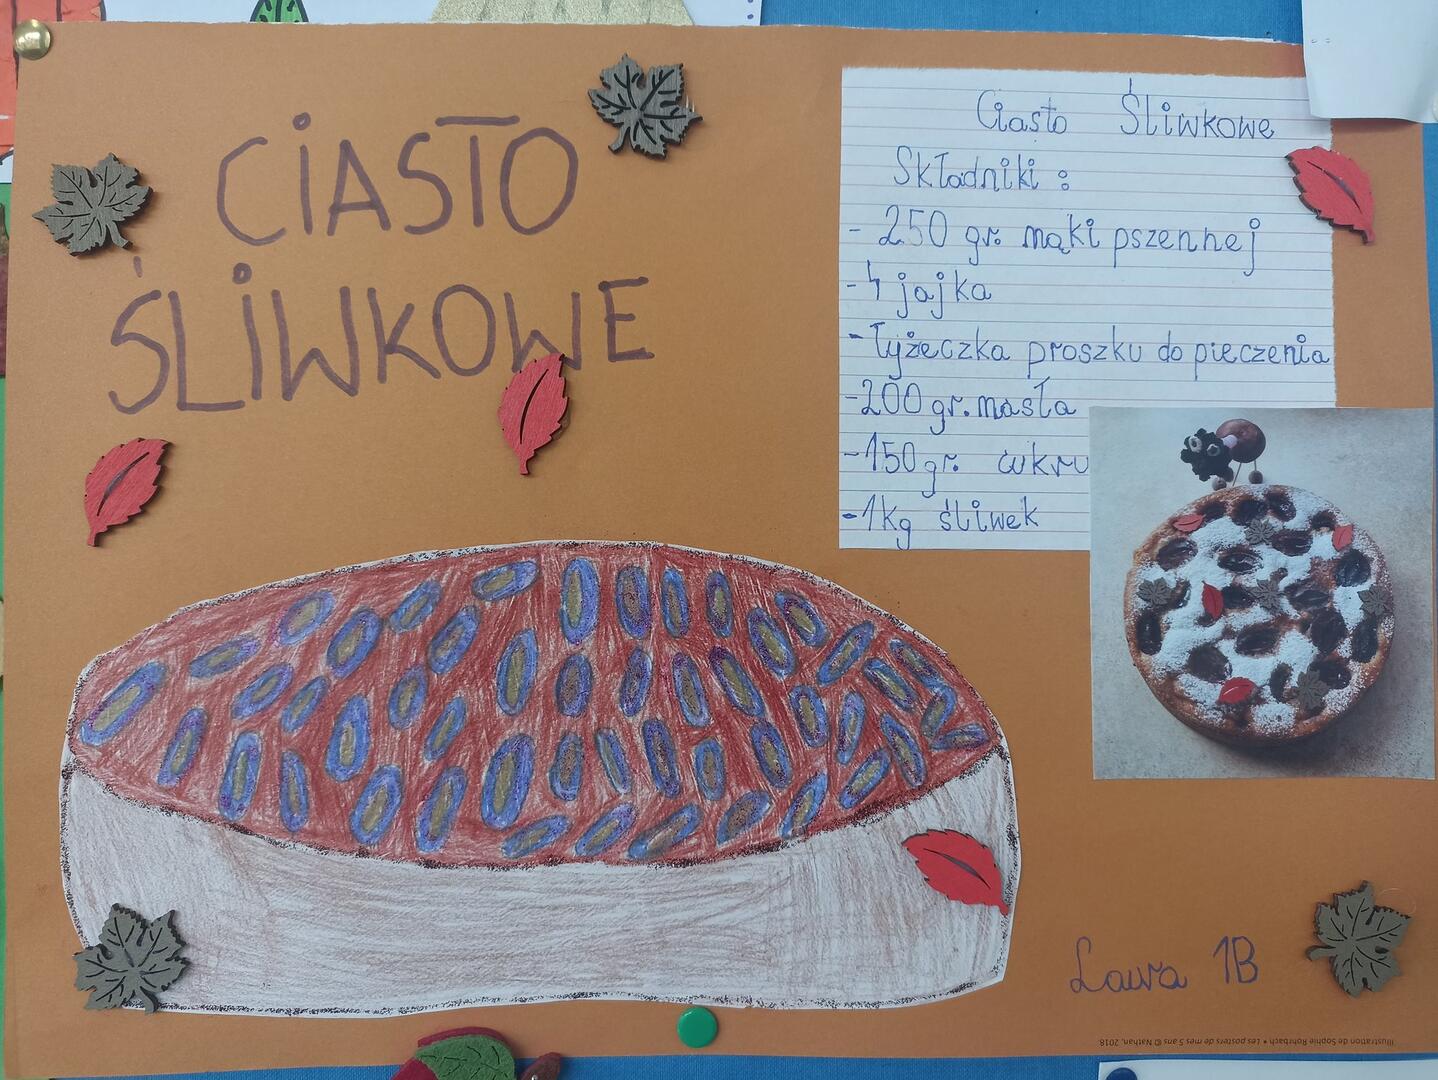 CIASTO
ŚLIWKOWE
Ciasto Śliwkowe
Składniki :
- 250 gr. mąki pszennej
- 4 jajka
- łyżeczka proszku do pieczenia
- 200 gr. masła
- 150 gr. cukru
- 1kg śliwek
Laura 1B
Illustration de Sophie Rohrbach • Les posters de mes 5 ans © Nathan, 2018